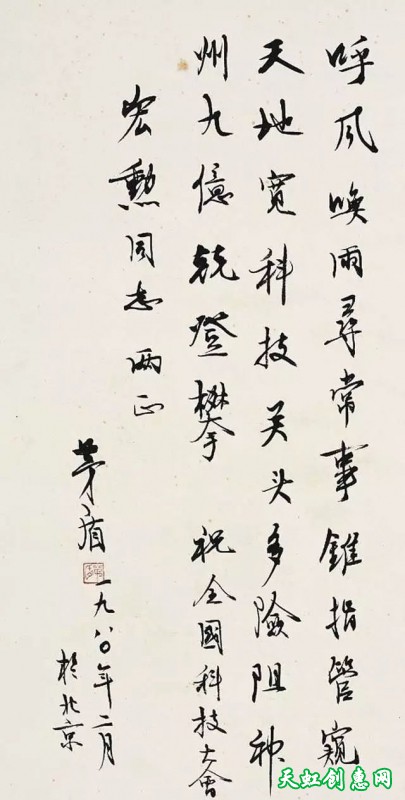 呼风唤雨寻常事錐指管窺
天地宽科技关头多險阻神
州九億兢登攀 祝全國科技大會
宏勳同志 两正
茅盾 一九八〇年二月
於北京
天虹创惠网